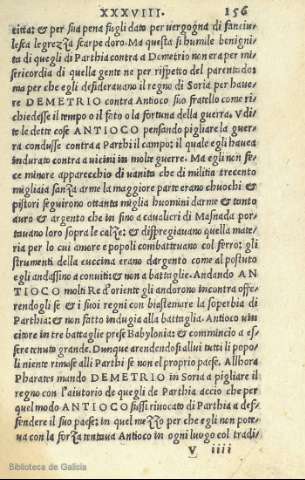 XXXVIII. 156
titta: & per sua pena fugli dato per uergogna di fanciul
lescſa legrezza scarpe doro. Ma questa si humile benigni
ta di quegli di Parthia contra a Demetrio non era per mi
sericordia di quella gente ne per rispetto del parentado:
ma per che egli desiderauano il regno di Soria per haue
re DEMETRIO contra Antioco suo fratello come ri
chiedesse il tempo o il fato o la fortuna della guerra. Vdi
te le dette cose ANTIOCO pensando pigliare la guer
ra condusse contra a Parthi il campo: il quale egli hauea
indurato contra a uicini in molte guerre. Ma egli non fe
ce minore apparecchio di uanita che di militia trecento
migliaia sanza arme la maggiore parte erano chuochi &
pistori seguirono ottanta miglia huomini darme & tanto
auro & argento che in fino a caualieri di Masnada por
tauano loro sopra le calze: & dispregiauano quella mate
ria per lo cui amore e popoli combattauano col ferro: gli
strumenti della cuccina erano dargento come al postuto
egli andassino a conuiti: & non a battaglie. Andando AN
TIOCO molti Re d'oriente gli andorono incontra offe
rendogli se & i suoi regni con biastemare la soperbia di
Parthia: & non fatto indugia alla battaglia. Antioco uin
citore in tre battaglie prese Babylonia: & comminciò a es
sere tenuto grande. Dunque arendendosi allui tutti li popo
li niente rimase alli Parthi se non el proprio paese. Allhora
Pharates mando DEMETRIO in Soria a pigliare il
regno con l'aiutorio de quegli de Parthia accio che per
quel modo ANTIOCO fussi riuocato di Parthia a def
fendere il suo paese: in quel mezzo per che egli non pote
ua con la forza tentaua Antioco in ogni luogo col tradi
V iiii
Biblioteca de Galicia